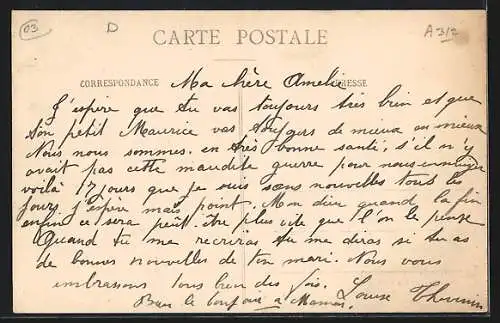 03
D
A 312
CARTE POSTALE
CORRESPONDANCE
ADRESSE
Ma chère Amélie
J'espère que tu vas toujours très bien et que
ton petit Maurice vas toujours de mieux en mieux
Nous nous sommes en très bonne santé, s'il n'y
avait pas cette maudite guerre pour nous ennuyer
voilà 17 jours que je suis sans nouvelles tous les
jours j'espère mais point. Mon dieu quand la fin
enfin ce sera peut-être plus vite que l'on le pense
Quand tu me recriras tu me diras si tu as
de bonnes nouvelles de ton mari. Nous vous
embrassons tous bien des fois.
Bien le bonjour à Maman. Louise